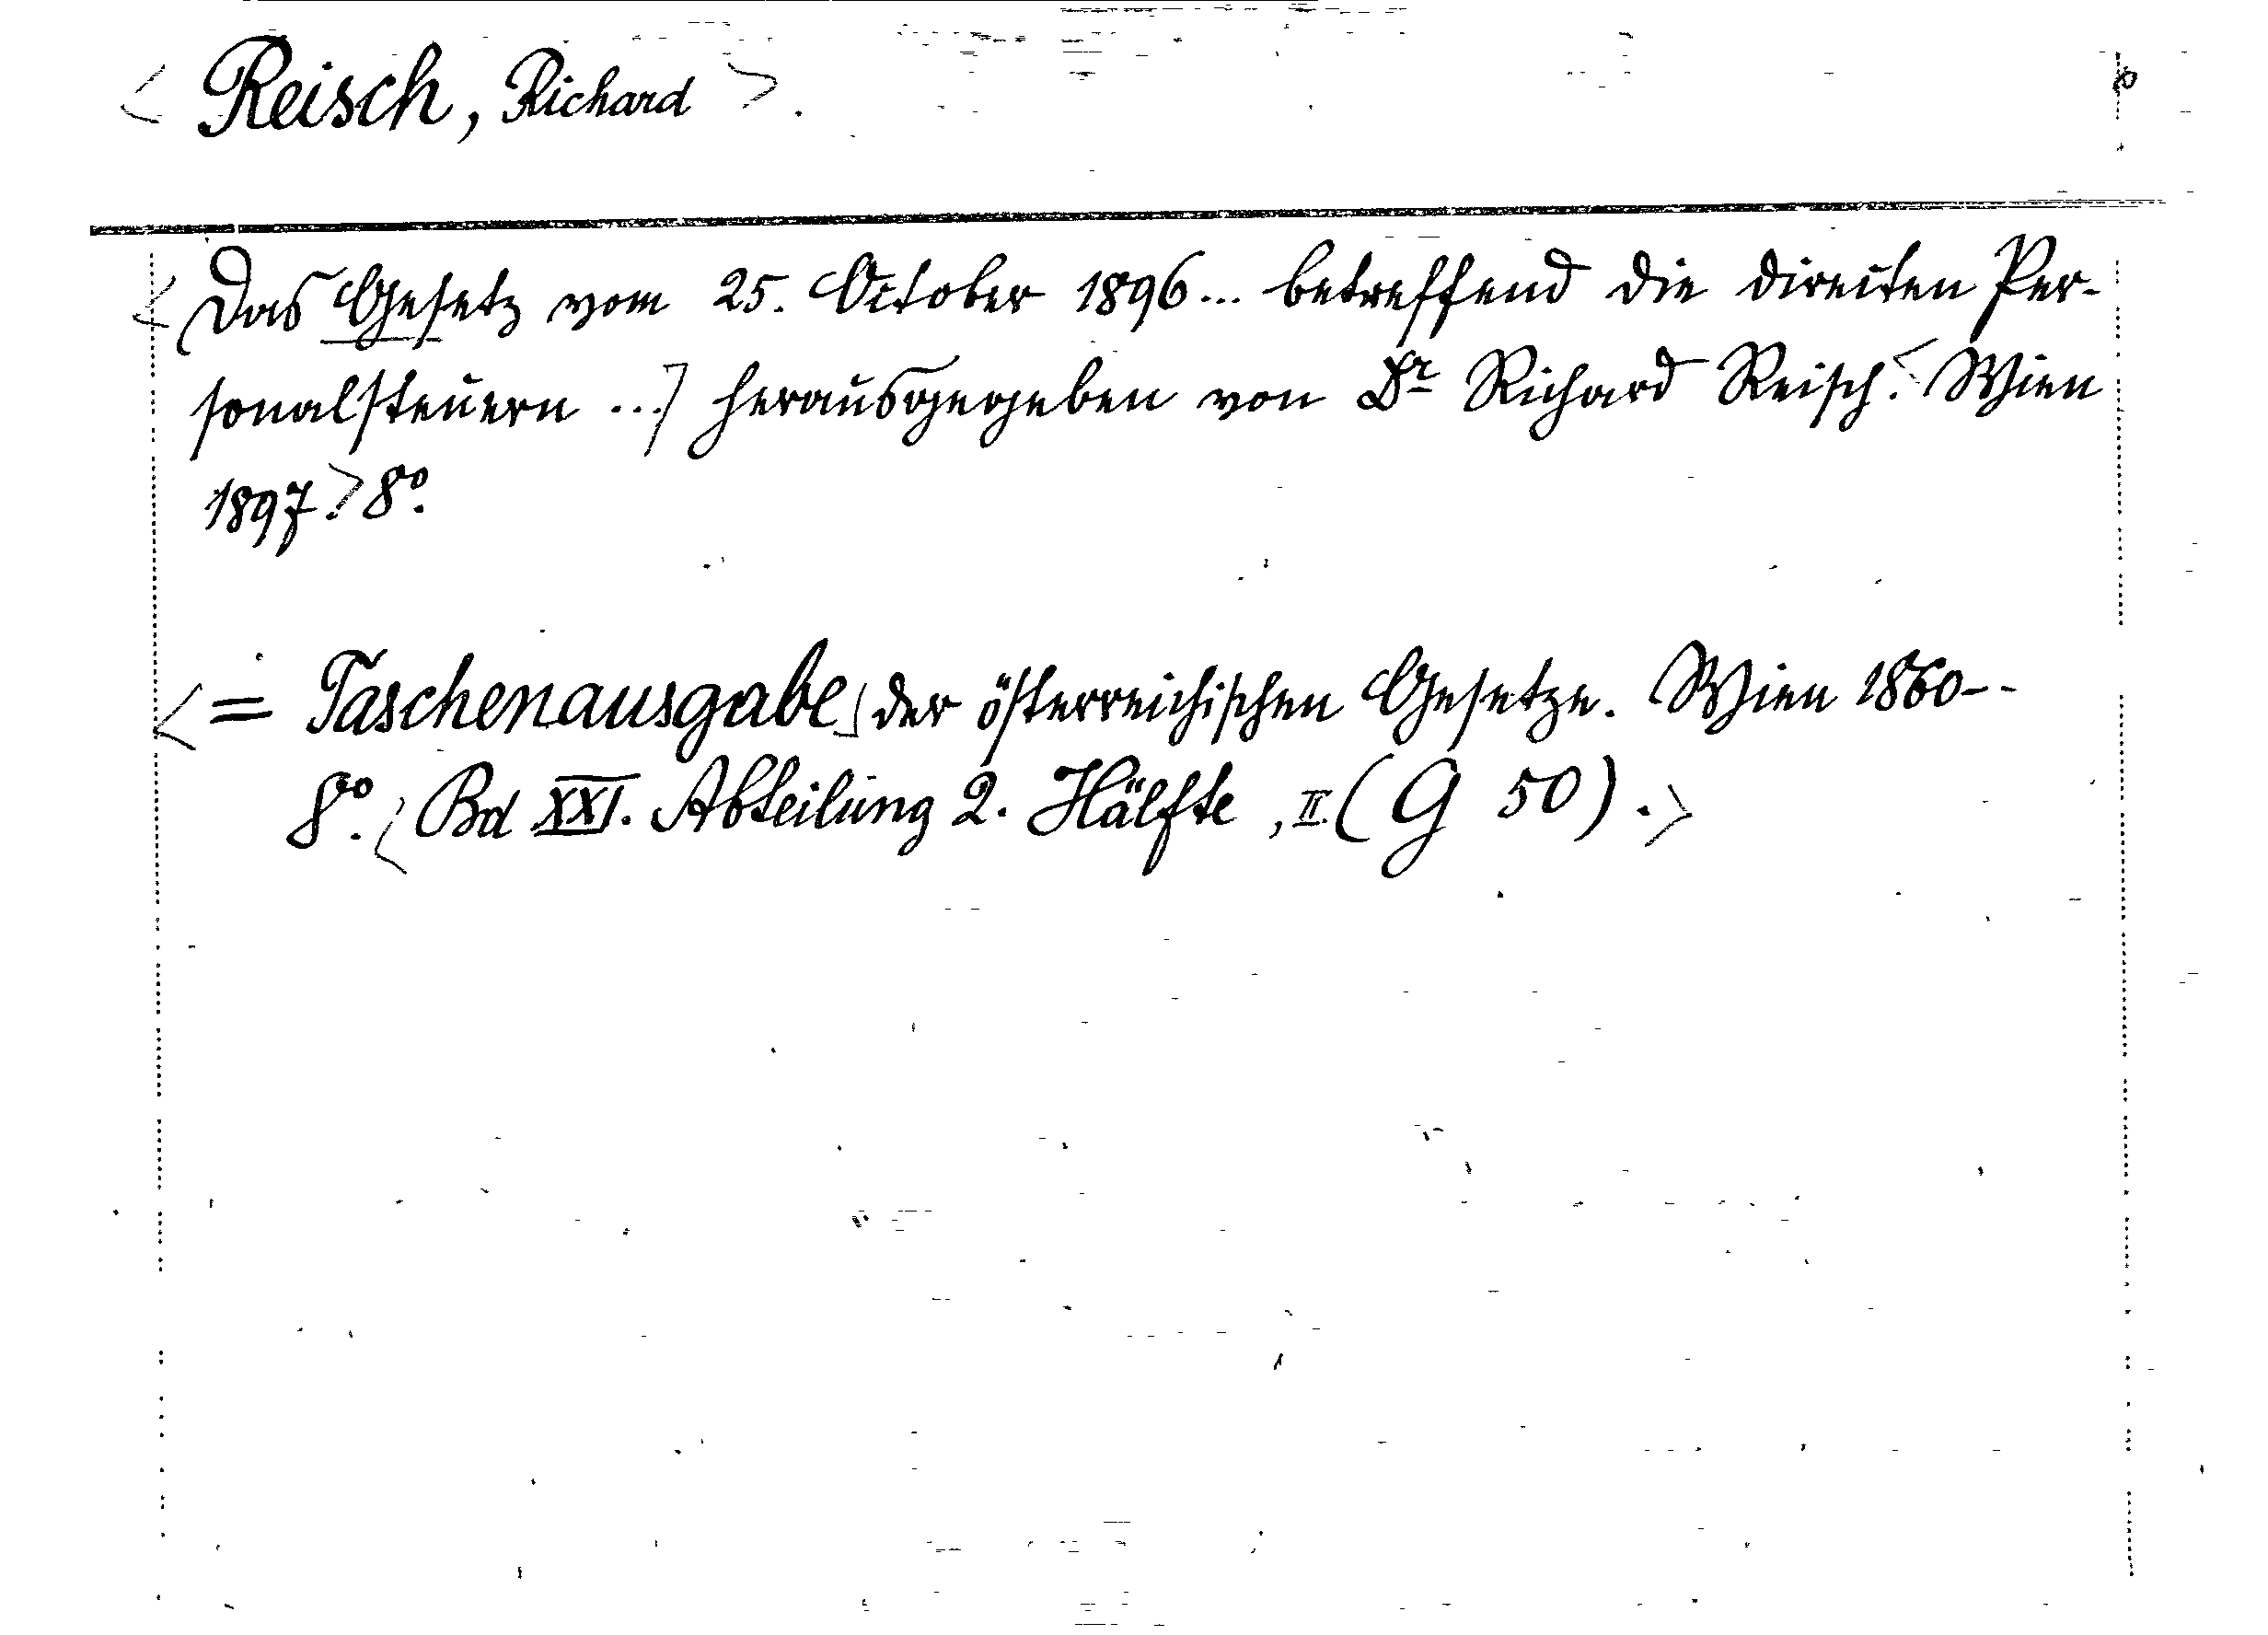 < Reisch, Richard >.
< Das Gesetz vom 25. October 1896... betreffend die directen Per-
sonalsteuern ...] herausgegeben von Dr Richard Reisch.< Wien
1897.> 8°.
< = Taschenausgabe] der österreichischen Gesetze. Wien 1860--
8°.< Bd XXI. Abteilung 2. Hälfte, II. (G 50).>